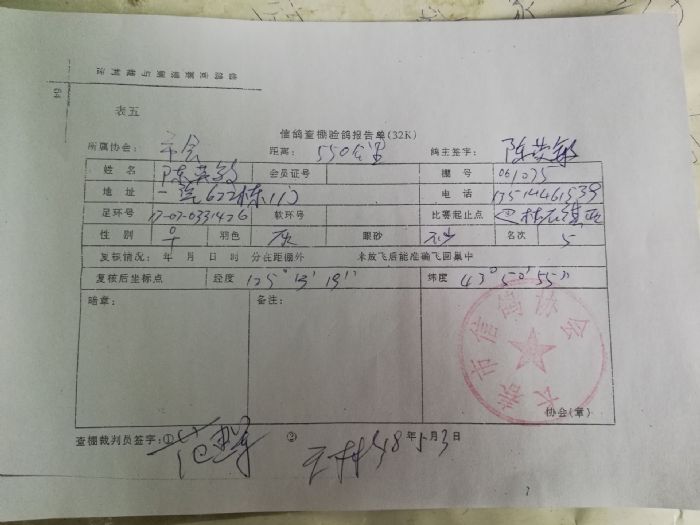 信鸽竞赛规则与裁判法
64
表五
信鸽查棚验鸽报告单(32K)
所属协会: 市会 距离: 550公里 鸽主签字: 陈英敏
姓名 陈英敏 会员证号 棚号 061075
地址 一汽622栋1门 电话
足环号 17-07-0331426 软环号 比赛起止点
性别 ♀ 羽色 灰 眼砂 砂 名次 5
复核情况: 年 月 日 时 分在距棚外 米放飞后能准确飞回巢中
复核后坐标点 经度 125° 13′ 19″ 纬度 43° 50′ 55″
暗章: 备注:
长春市信鸽协会
协会(章)
查棚裁判员签字:① ② 年 月 3 日